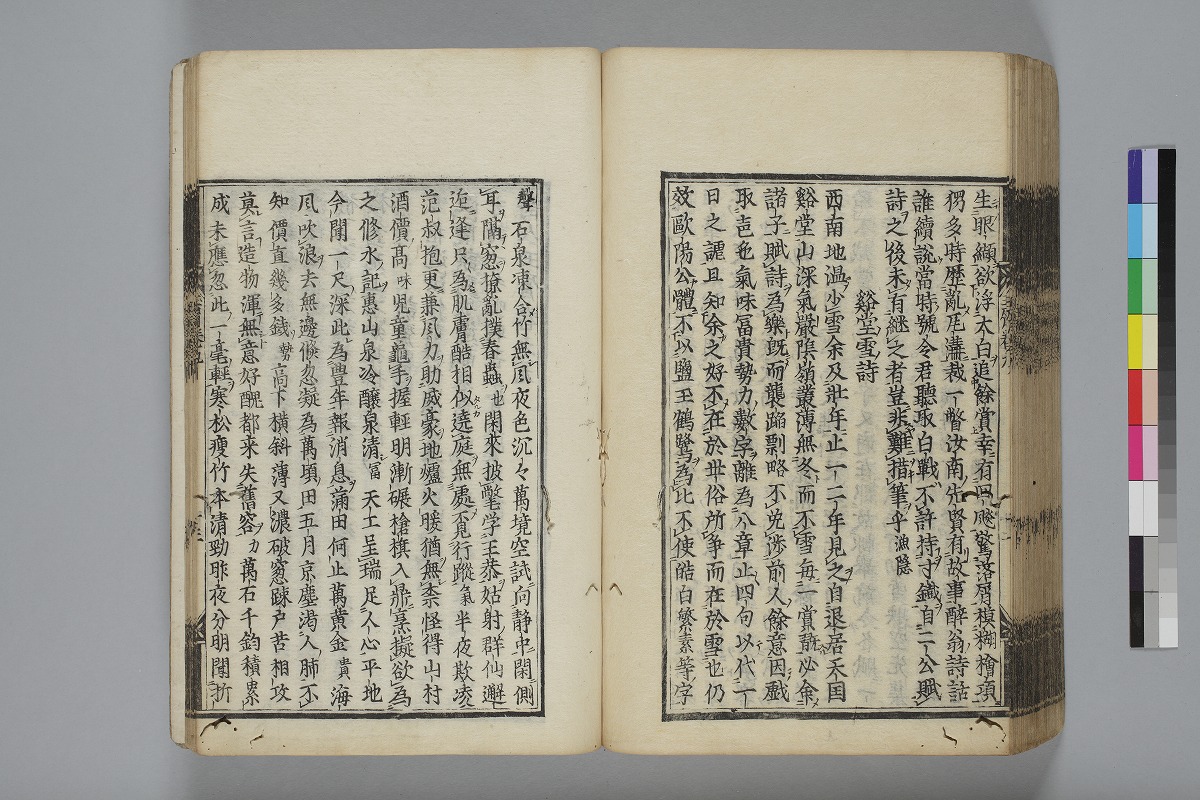 生眼纈欲浮大白追餘賞幸有回飈驚落屑模糊檜頂
猶多時歷亂瓦溝裁一瞥汝南先賢有故事醉翁詩話
誰續說當時號令君聽取白戰不許持寸鐵自二公賦
詩之後未有継之者豈非難措筆乎漁隱
谿堂雪詩
西南地温少雪余及壯年止一二年見之自退居天国
谿堂山深氣嚴陰嶺叢薄無冬而不雪每一賞翫必命
諸子賦詩為樂既而襲蹈剽略不免涉前人餘意因戲
取声色氣味冨貴勢力數字離為八章止四句以代一
日之謔且知余之好不在於世俗所争而在於雪也仍
效歐陽公體不以鹽玉鶴鷺為比不使皓白繁素等字
聲石泉凍合竹無風夜色沉々萬境空試向静中閑側
耳隔窓撩亂撲春蟲色閑來披氅学王恭姑射群仙邂
逅逢只為肌膚酷相似遶庭無處覓行蹤氣半夜欺凌
范叔袍更兼風力助威豪地爐火暖猶無柰怪得山村
酒價髙味児童龜手握輕明漸碾槍旗入鼎烹擬欲為
之修水記惠山泉冷釀泉清冨天工呈瑞足人心平地
今聞一尺深此為豊年報消息蒲田何止萬黄金貴海
風吹浪去無邊倏忽凝為萬頃田五月京塵渇人肺不
知價直幾多錢勢高下横斜薄又濃破窓踈戸苦相攻
莫言造物渾無意好醜都来失舊容力萬石千鈞積累
成未應忽此一毫輕寒松瘦竹本清勁昨夜分明聞折